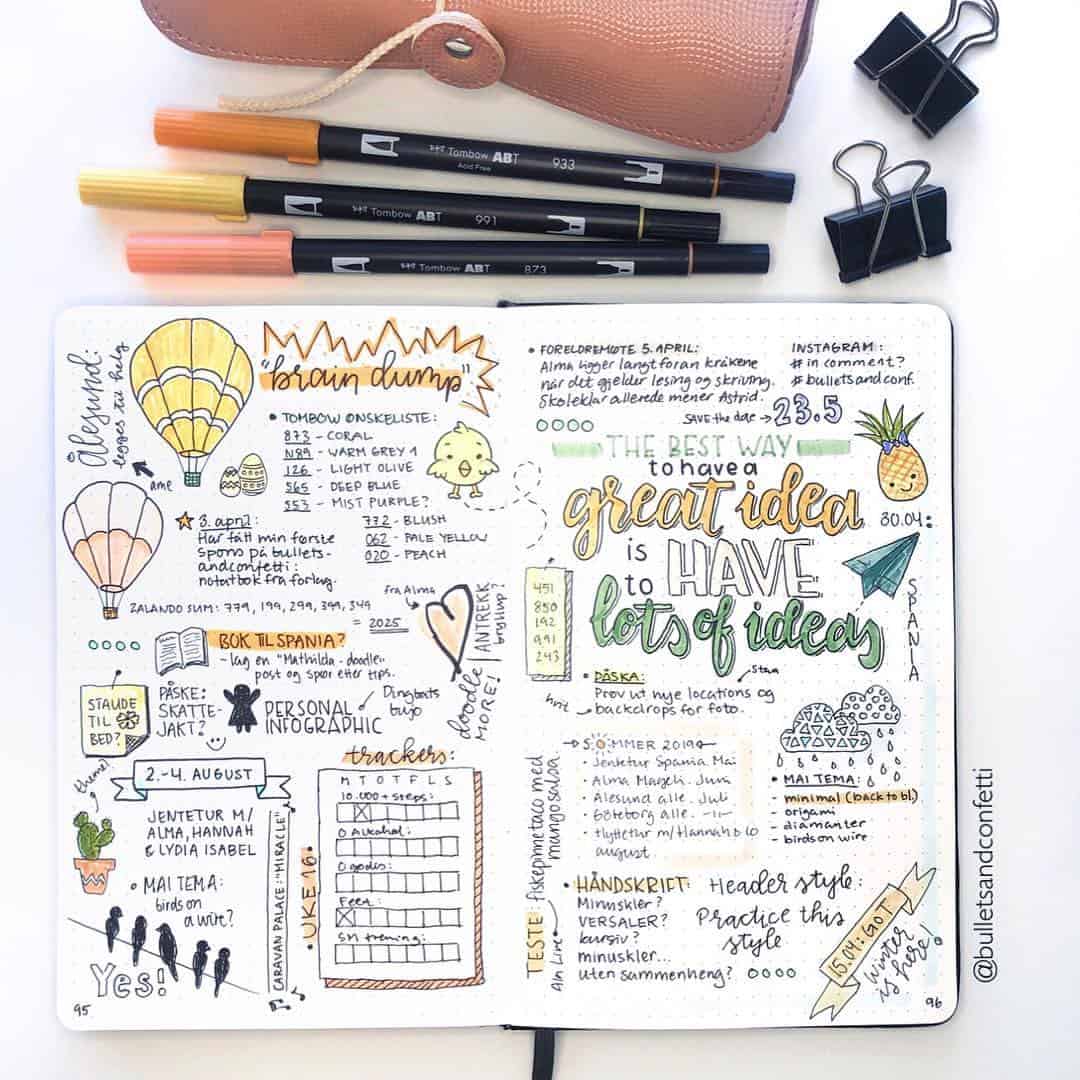 Tombow ABT
Acid Free
933
Tombow ABT
991
Tombow ABT
873
Ålesund:
legges til helg
ame
"brain dump"
• TOMBOW ØNSKELISTE:
873 - CORAL
N89 - WARM GREY 1
126 - LIGHT OLIVE
565 - DEEP BLUE
553 - MIST PURPLE?
772 - BLUSH
062 - PALE YELLOW
020 - PEACH
3. april:
Har fått min første
spons på bullets-
andconfetti:
notatbok fra forlag.
ZALANDO SUM: 779, 199, 299, 399, 349
= 2025
fra Alma
ANTREKK
bryllup?
doodle
MORE!
BOK TIL SPANIA?
- lag en "Mathilda-doodle"
post og spør etter tips.
STAUDE
TIL
BED?
PÅSKE:
SKATTE-
JAKT?
PERSONAL
INFOGRAPHIC
Dingbats
bujo
theme?
2.-4. AUGUST
JENTETUR M/
ALMA, HANNAH
& LYDIA ISABEL
• MAI TEMA:
birds on
a wire?
Yes!
CARAVAN PALACE: "MIRACLE"
• UKE 16 •
trackers:
M T O T F L S
10.000+ steps:
0 Alkohol:
0 godis:
SM trening:
95
• FORELDREMØTE 5. APRIL:
Alma ligger langt foran kråkene
når det gjelder lesing og skriving.
Skoleklar allerede mener Astrid.
INSTAGRAM:
# in comment?
# bulletsandconf.
SAVE the date → 23.5
THE BEST WAY
to have a
great idea
is HAVE
to
lots of ideas
30.04:
SPANIA
451
850
192
991
243
• PÅSKA:
Prøv ut nye locations og
backdrops for foto.
hvit
SOMMER 2019
• Jentetur Spania Mai
• Alma Mageli. Juni
• Ålesund alle. Juli
• Göteborg alle. -||-
• Hyttetur m/Hannah & co
august
• MAI TEMA:
- minimal (back to b.)
- origami
- diamanter
- birds on wire
TESTE: fiskepinnetaco med
mangosalsa
• HÅNDSKRIFT:
Minuskler?
VERSALER?
kursiv?
minuskler...
uten sammenheng?
Header style:
Practice this
style
15.04: GOT
winter
is here!
96
@bulletsandconfetti